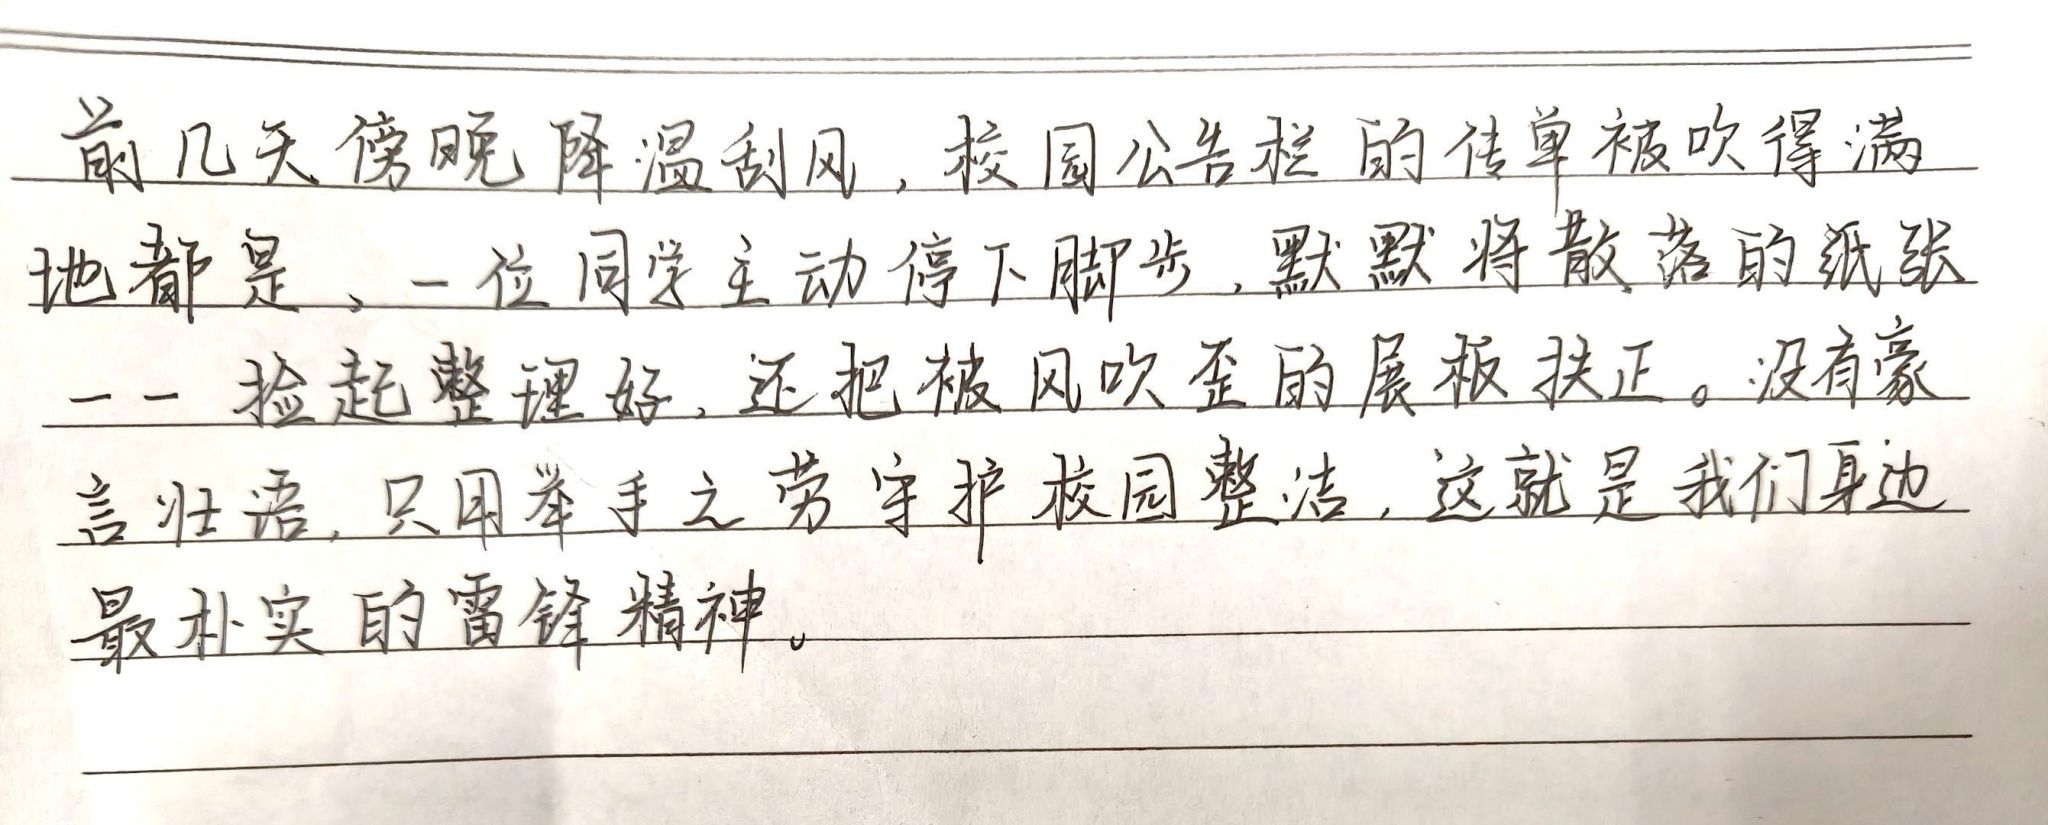 前几天傍晚降温刮风，校园公告栏的传单被吹得满
地都是、一位同学主动停下脚步，默默将散落的纸张
一一捡起整理好，还把被风吹歪的展板扶正。没有豪
言壮语，只用举手之劳守护校园整洁，这就是我们身边
最朴实的雷锋精神。